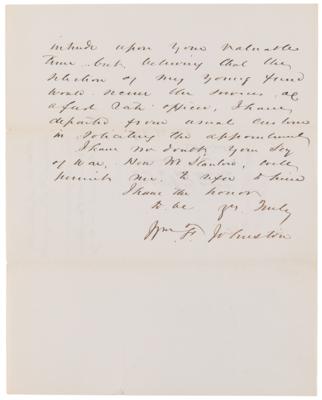 intrude upon your valuable
time but believing that the
selection of my young friend
would secure the services of
a first rate officer, I have
departed from usual custom
in soliciting the appointment
I have no doubt your Secy
of War, Hon Mr Stanton, will
permit me to refer to him
I have the honor
to be yrs Truly
Wm F. Johnston